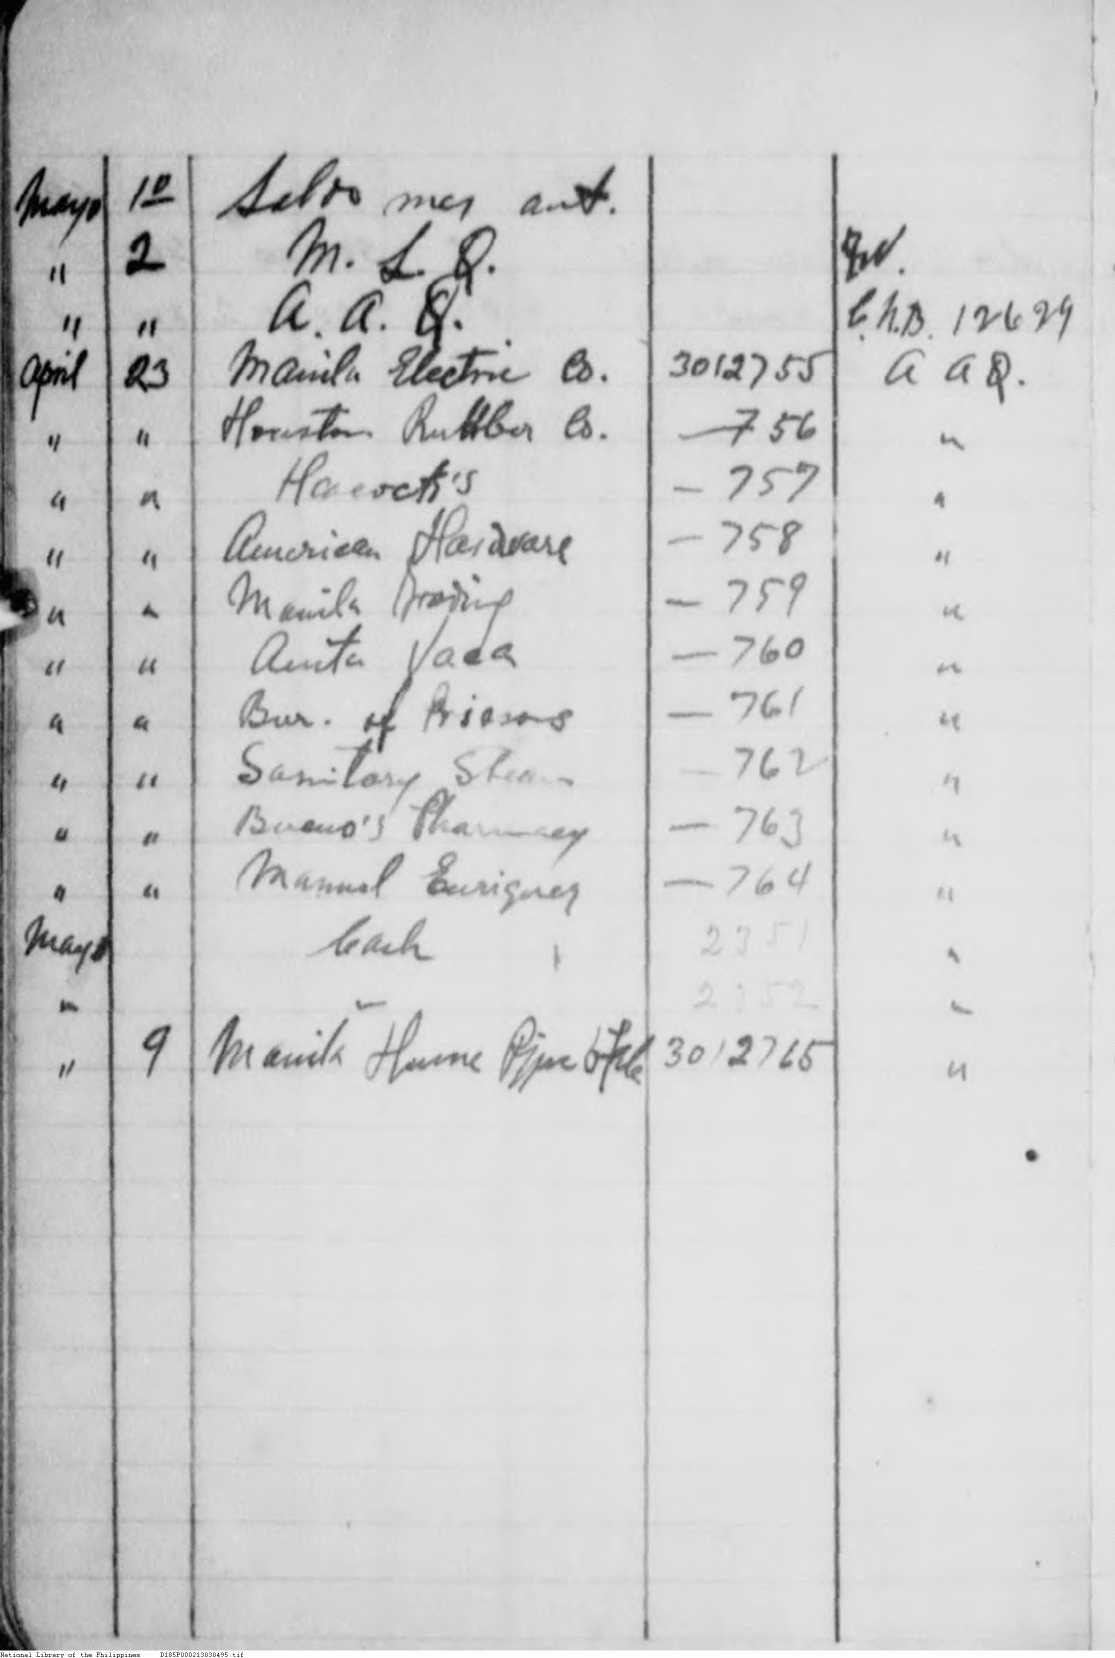 Mayo 1º Saldo mes ant.
" 2 M. L. Q. Fev.
" " A. A. Q. C.N.B. 12629
April 23 Manila Electric Co. 3012755 A A Q.
" " Houston Rubber Co. — 756 "
" " Heacock's — 757 "
" " American Hardware — 758 "
" " Manila Trading — 759 "
" " Anita Vaca — 760 "
" " Bur. of Prisons — 761 "
" " Sanitary Steam — 762 "
" " Bueno's Pharmacy — 763 "
" " Manuel Enriquez — 764 "
Mayo Cash 2351 "
" " 2352 "
" 9 Manila Hume Pipe & 3012765 "
National Library of the Philippines D185P000213038495.tif